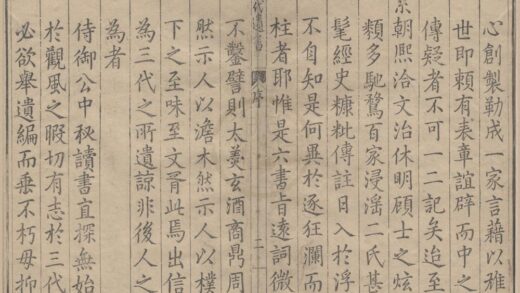 心創製勒成一家言藉以雅
世即賴有表章誼辟而中之
傳疑者不可一二記矣迨至
朝熙洽文治休明顧士之炫
類多馳騖百家浸淫二氏甚
髦經史糠粃傳註日入於浮
不自知是何異於逐狂瀾而
柱者耶惟是六書旨遠詞微
代遺書 序 二
不鑿譬則太羹玄酒商鼎周
然示人以澹木然示人以樸
下之至味至文胥此焉出信
為三代之所遺諒非後人之
為者
侍御公中秘讀書直探無始
於觀風之暇切有志於三代
必欲舉遺編而垂不朽毋抑